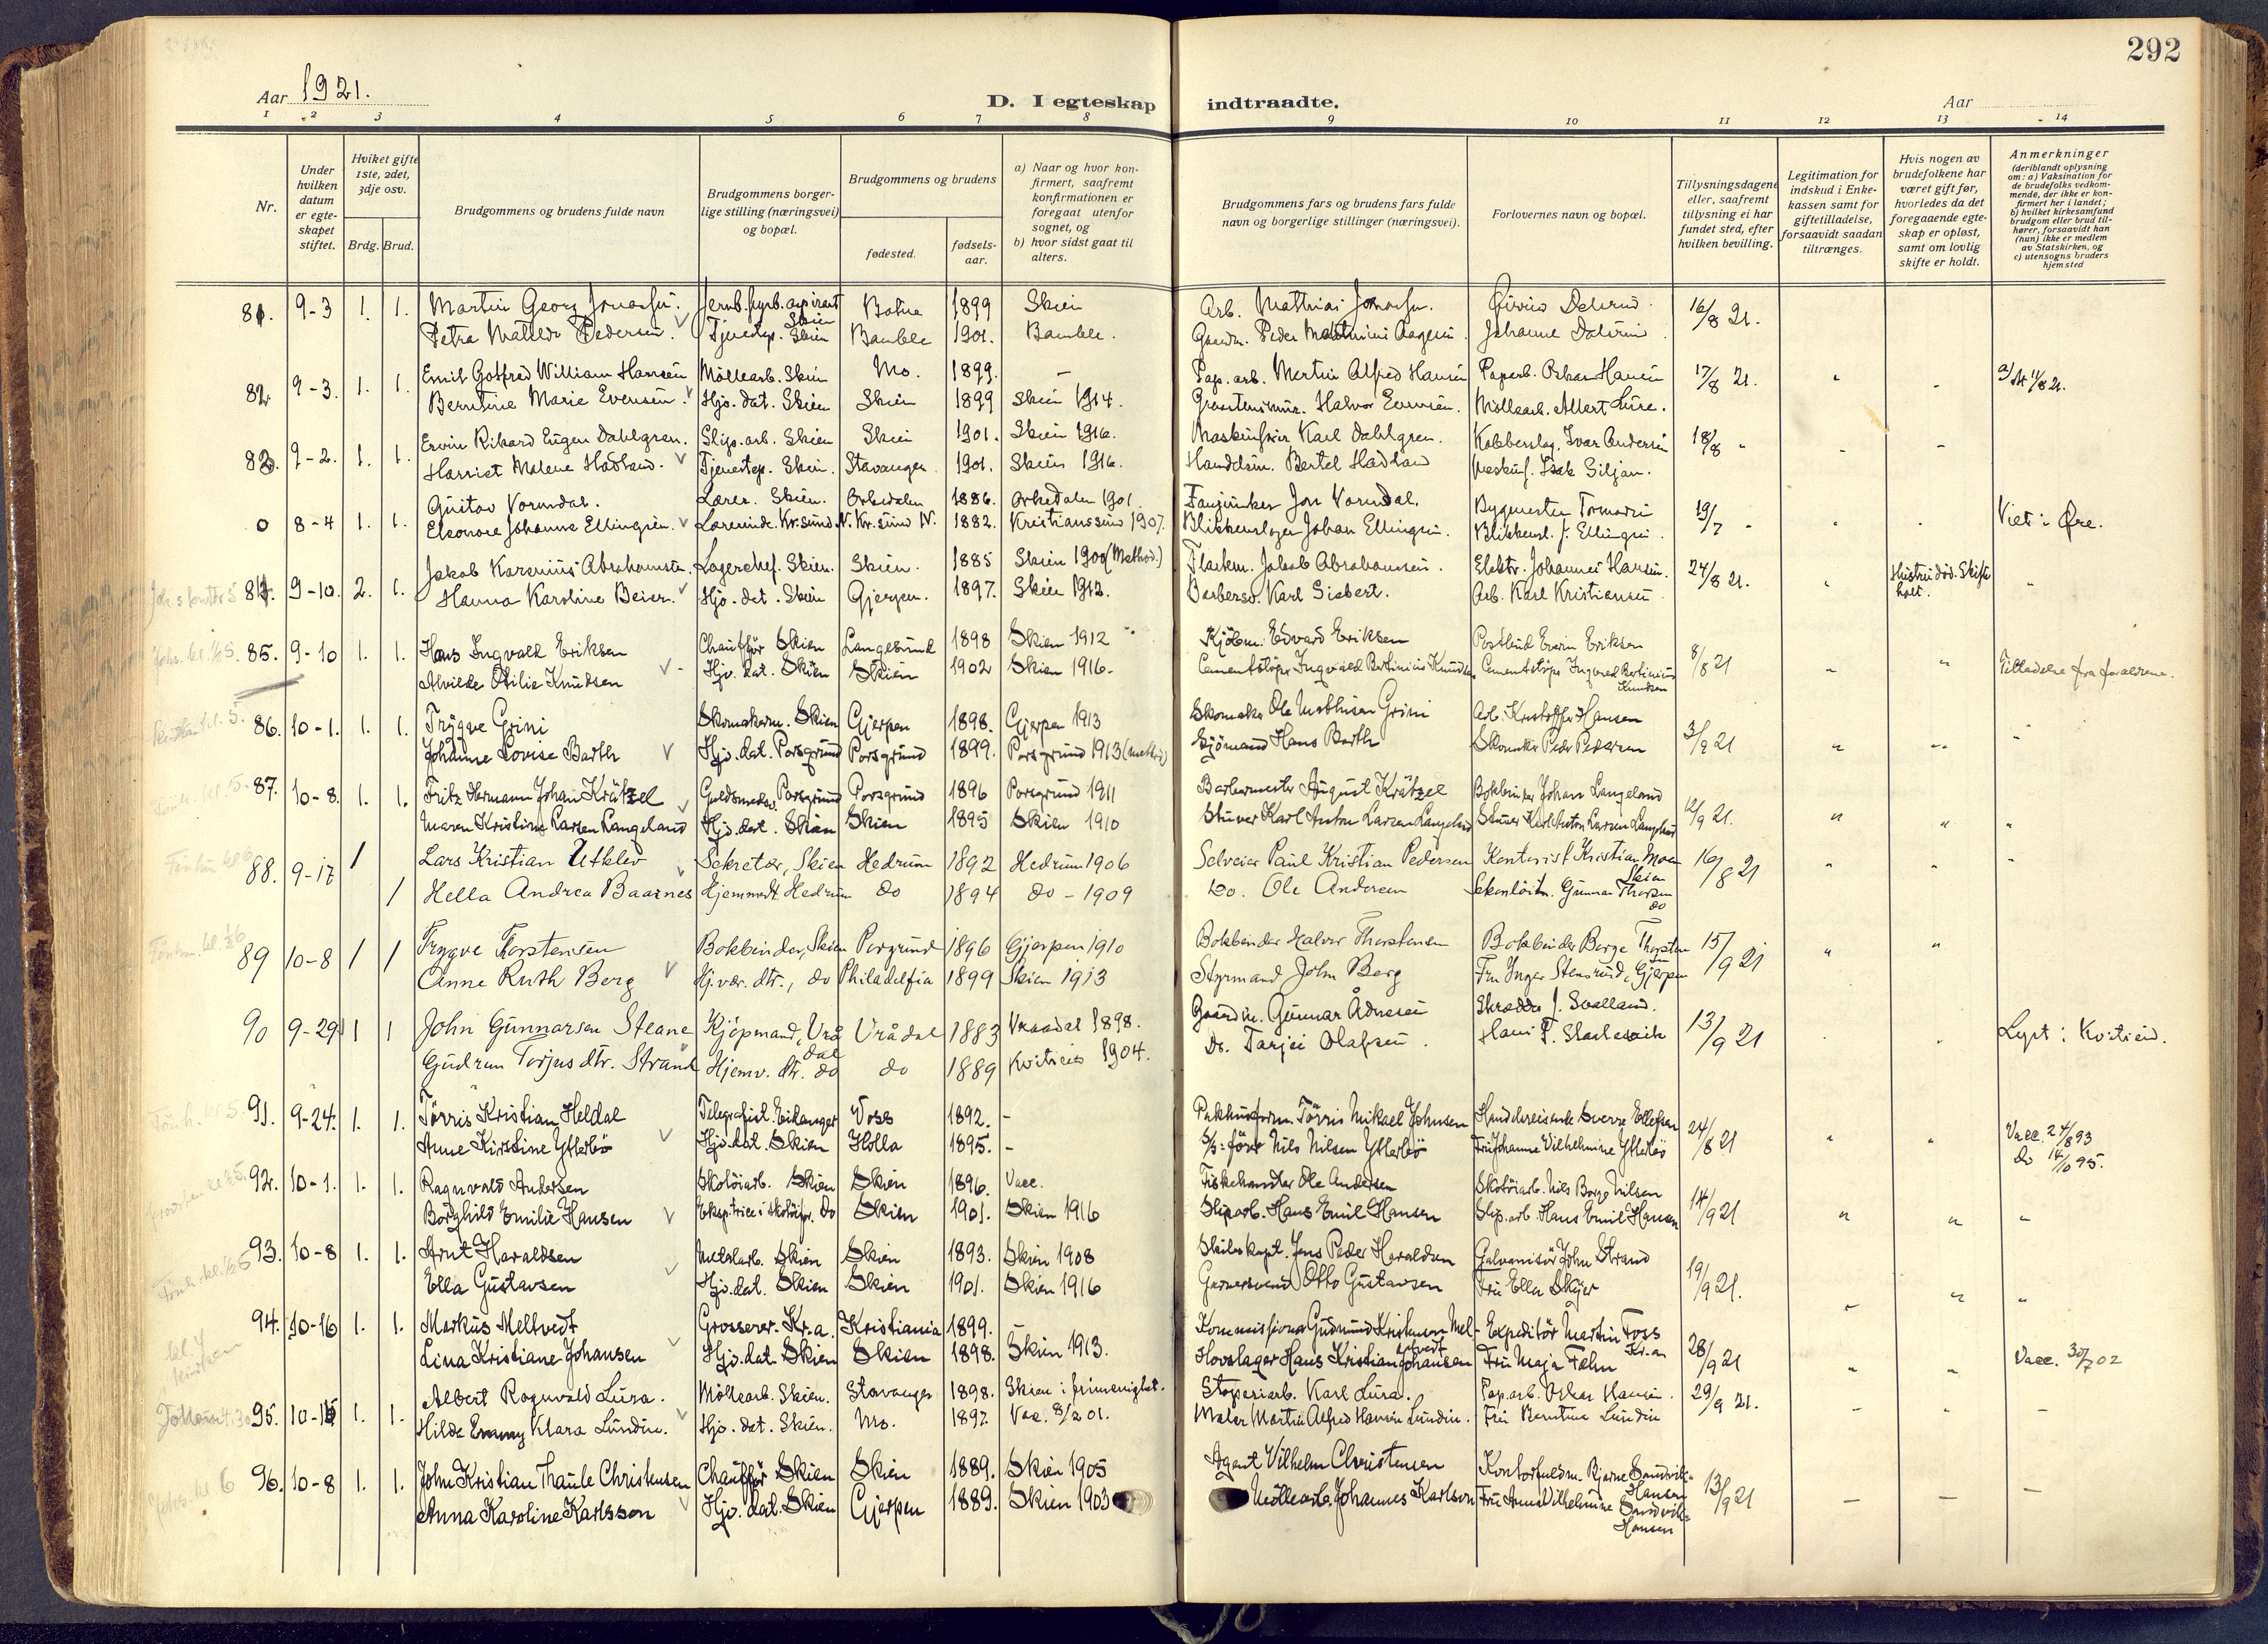 292
Aar 1921.
D. I egteskap indtraadte.
Aar
1 2 3 4 5 6 7 8 9 10 11 12 13 14
Nr.
Under hvilken datum er egteskapet stiftet.
Hviket gifte 1ste, 2det, 3dje osv.
Brdg. Brud.
Brudgommens og brudens fulde navn
Brudgommens borgerlige stilling (næringsvei) og bopæl.
Brudgommens og brudens
fødested.
fødselsaar.
a) Naar og hvor konfirmert, saafremt konfirmationen er foregaat utenfor sognet, og
b) hvor sidst gaat til alters.
Brudgommens fars og brudens fars fulde navn og borgerlige stillinger (næringsvei).
Forlovernes navn og bopæl.
Tillysningsdagene eller, saafremt tillysning ei har fundet sted, efter hvilken bevilling.
Legitimation for indskud i Enkekassen samt for giftetilladelse, forsaavidt saadan tiltrænges.
Hvis nogen av brudefolkene har været gift før, hvorledes da det foregaaende egteskap er opløst, samt om lovlig skifte er holdt.
Anmerkninger (deriblandt oplysning om: a) Vaksination for de brudefolks vedkommende, der ikke er konfirmert her i landet; b) hvilket kirkesamfund brudgom eller brud tilhører, forsaavidt han (hun) ikke er medlem av Statskirken, og c) utensogns bruders hjemsted
81. 9-3 1. 1. Martin Georg Skien Botne 1899 Skien Arb. Mathias 16/8 21.
Petra Matilde Pedersen. Tjenestep. Skien Bamble 1901. Bamble. Gaardm. Peder Johanne
82 9-3. 1. 1. Emil Gotfred William Hansen Möllearb. Skien Mo. 1899. – Pap. arb. Martin Alfred Hansen Paparb. Oskar Hansen 17/8 21. "
Berntine Marie Evensen. Hjv. dat. Skien Skien 1899 Skien 1914. Halvor Evensen. Möllearb. Albert Lura.
83. 9-2. 1. 1. Ervin Rikard Eugen Dahlgren. Slip. arb. Skien Skien 1901. Skien 1916. Karl Dahlgren. Kobberslag. Ivar Andersen 18/8 "
Harriet Malene Hadland. Tjenestep. Skien. Stavanger 1901. Skien 1916. Handelsm. Bertel Hadland Isak Siljan.
0 8-4 1. 1. Gustav Vormdal. Lærer. Skien. Orkedalen 1886. Orkedalen 1901. Jon Vormdal. Bygmester 19/7 "
Eleonore Johanne Ellingsen. Lærerinde. Kr.sund N. Kr.sund N. 1882. Kristianssund 1907. Blikkenslager Johan Ellingsen. Blikkensl. J. Ellingsen Viet i Øre.
84. 9-10. 2. 1. Jakob Karenius Abrahamsen. Lagerchef. Skien. Skien. 1885 Skien 1900 (Method.) Jakob Abrahamsen. Elektr. Johannes Hansen. 24/8 21. " Hustru död. Skifte holt. "
Hanna Karoline Beier. Hjv. dat. Skien Gjerpen. 1897. Skien 1912. Karl Siebert. Arb. Karl Kristiansen
85. 9-10 1. 1. Hans Ingvald Eriksen Chauffør Skien Langesund 1898 Skien 1912 Kjöbm. Edvard Eriksen Postbud Ervin Eriksen 8/8 21
Alvilde Otilie Knudsen Hjv. dat. Skien Skien 1902 Skien 1916. Cementstöper Ingvald Bertinius Knudsen Cementstöper Ingvald Bertinius Knudsen " " Tilladelse fra forældrene.
86. 10-1. 1. 1. Trygve Grini Skomakerm. Skien Gjerpen 1898. Gjerpen 1913 Skomaker Ole Mathisen Grini Arb. Kristoffer Hansen 3/9 21
Johanne Lovise Barth Hjv. dat. Porsgrund Porsgrund 1899. Porsgrund 1913 Sjömand Hans Barth Skomaker Peder Pedersen " "
87. 10-8. 1. 1. Fritz Hermann Johan Krätzel Guldsmedsv. Porsgrund Porsgrund 1896 Porsgrund 1911 Barbermester August Krätzel Bokbinder Johan Langeland 12/9 21.
Maren Kristine Larsen Langeland Hjv. dat. Skien Skien 1895 Skien 1910 Stuver Karl Anton Larsen Langeland Stuver Karl Anton Larsen Langeland " " "
88. 9-17 1 Lars Kristian Utklev Sekretær, Skien Hedrum 1892 Hedrum 1906 Selveier Paul Kristian Pedersen Kontorist Kristian Moen Skien 16/8 21 " "
1 Hella Andrea Baarnes Hjemmedt. Hedrum do 1894 do - 1909 Do. Ole Andersen Sekonlöitn. Gunnar Thorsen do
89 10-8 1 1 Trygve Thorstensen Bokbinder, Skien Porsgrund 1896 Gjerpen 1910 Bokbinder Halvor Thorstensen Bokbinder Borge Thorsten 15/9 21 " "
Anne Ruth Berg Hj.vær. dtr., do Philadelfia 1899 Skien 1913 Styrmand John Berg Fru Inger Stensrud, Gjerpen
90 9-29 1 1 John Gunnarsen Steane Kjöpmand, Vrådal Vrådal 1883 Vraadal 1898. Gaardm. Gunnar Ådnesen Skrædder J. Svalland. 13/9 21
Gudrun Torjus dtr. Strand Hjemv. dtr. do do 1889 Kviteseid 1904. Do. Tarjei Olafsen. Hans Lyst i Kviteseid.
91. 9-24. 1. 1. Törris Kristian Heldal Telegrafist. Eidanger Voss 1892. – Pakhusform. Törris Mikael Johnsen Handelsreisende Sverre Ellefsen 24/8 21 " " Vacc. 24/8 93
Anne Kirstine Ytterbö Hjv. dat. Skien Holla 1895. – Nils Nilsen Ytterbö Fru Johanne Vilhelmine Ytterbö do 14/10 95.
92. 10-1. 1. 1. Ragnvald Andersen Skotöiarb. Skien Skien 1896. Vacc. Fiskehandler Ole Andersen Skotöiarb. Nils Borge Nilsen 14/9 21
Borghild Emilie Hansen Eksp.trice i skotöifor. do Skien 1901. Skien 1916 Sliparb. Hans Emil Hansen Slip. arb. Hans Emil Hansen " " "
93. 10-8 1. 1. Arnt Haraldsen Metalarb. Skien Skien 1893. Skien 1908 Skibskapt. Jens Peder Haraldsen Galvanisör John Strand 19/9 21.
Ella Gustavsen Hjv. dat. Skien Skien 1901. Skien 1916 Garversvend Otto Gustavsen Fru Ella Skyer " "
94. 10-16 1. 1. Markus Meltvedt Grosserer. Kr.a. Kristiania 1899. – Kommissionær Gudmund Kristensen Meltvedt Expeditör Martin Foss Kr.an 28/9 21
Lina Kristiane Johansen Hjv. dat. Skien Skien 1898. Skien 1913. Hovslager Hans Kristian Johansen Fru Maja Fæhn " " Vacc. 30/7 02
95. 10-15 1. 1. Albert Ragnvald Lura. Möllearb. Skien. Stavanger 1898. Skien i frimenighet. Stoperiarb. Karl Lura. Pap. arb. Oskar Hansen. 29/9 21.
Hilda Emmy Klara Lundin. Hjv. dat. Skien. Mo. 1897. Vac. 8/2 01. Maler Martin Alfred Hansen Lundin. Fru Berntine Lundin – – –
96. 10-8 1. 1. John Kristian Thaule Christensen Chauffør Skien Skien 1889. Skien 1905 Agent Vilhelm Christensen Kontorfuldm. Bjarne Sandvik-Hansen 13/9 21
Anna Karoline Karlsson Hjv. dat. Skien Gjerpen 1889. Skien 1903 Möllearb. Johannes Karlson Fru Anna Vilhelmine Sandvik-Hansen – – –